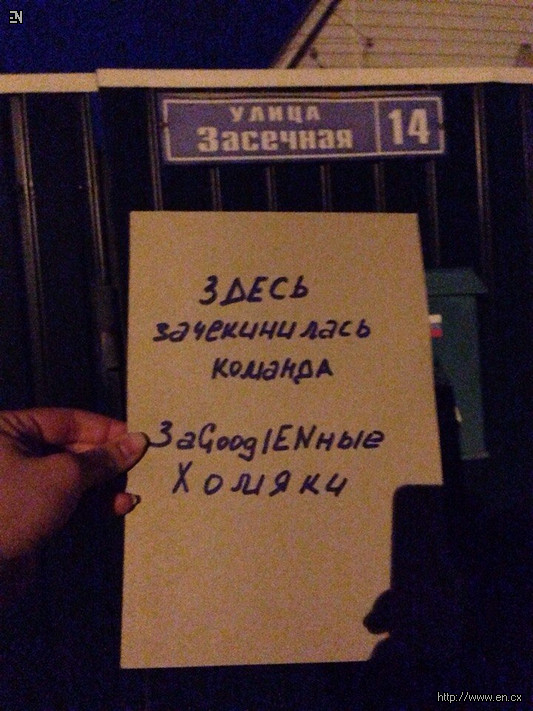 EN
УЛИЦА
Засечная 14
ЗДЕСЬ
зачекинилась
команда
ЗаGooglENные
Хомяки
http://www.en.cx